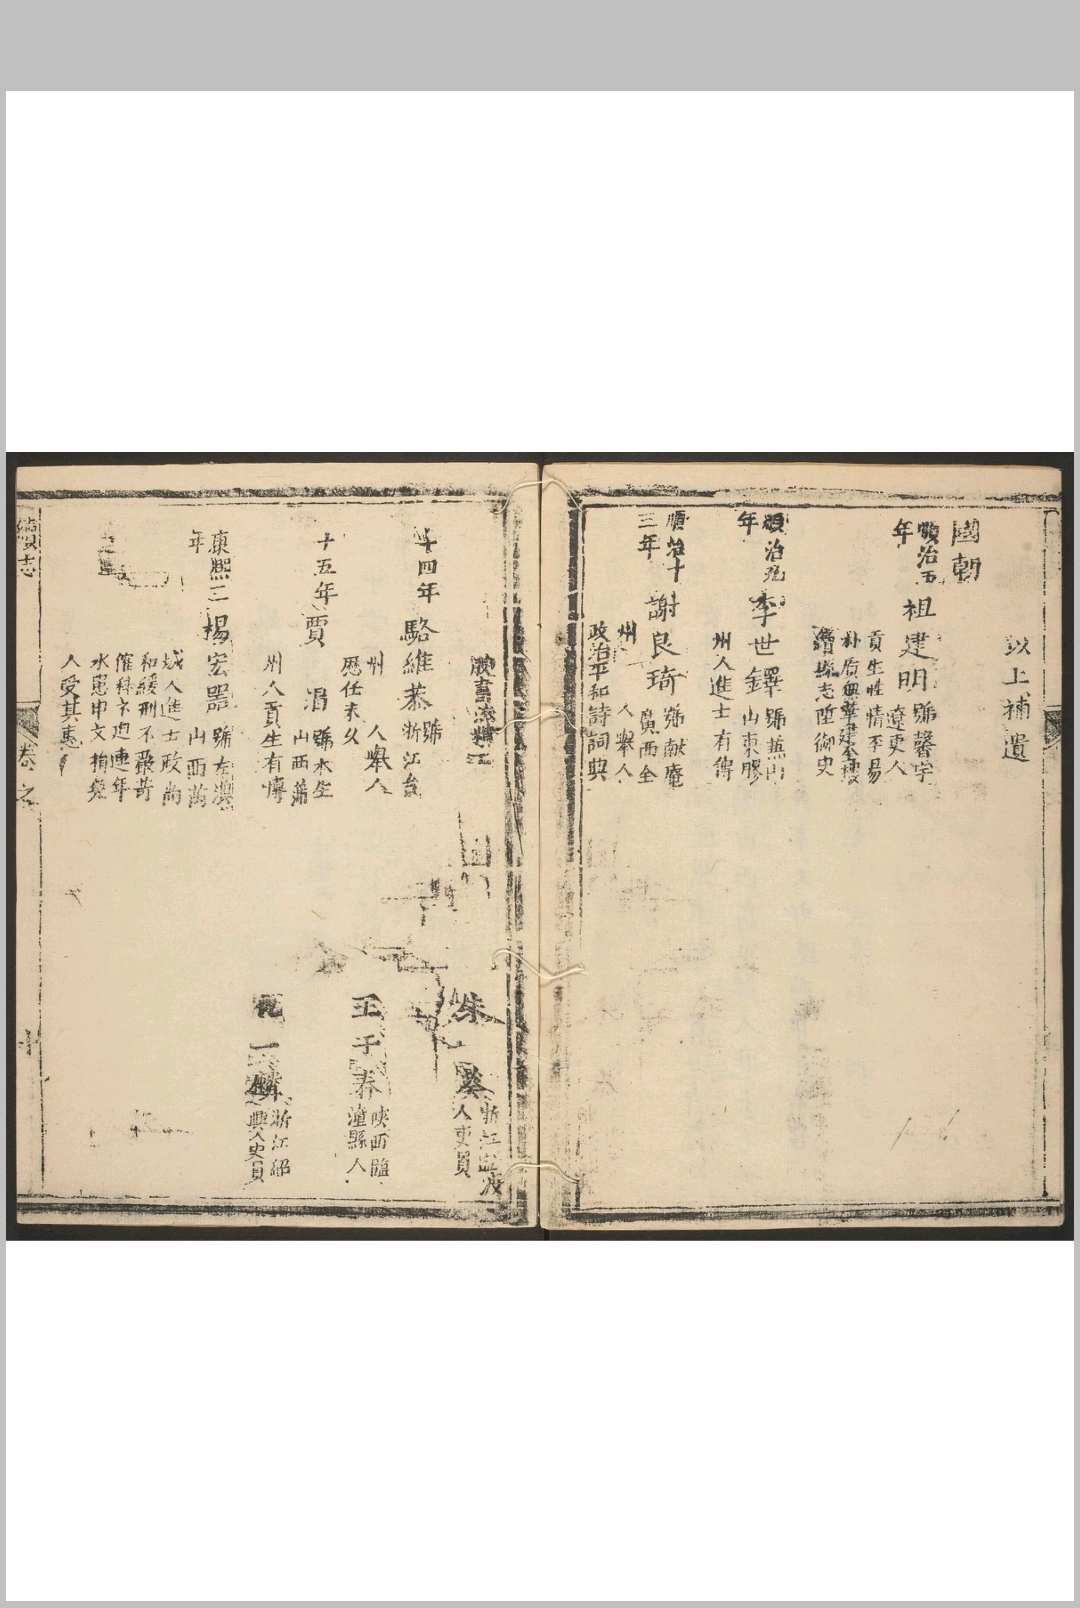 以上補遺
國朝
順治五年
祖建明
號馨宇
遼東人
貢生性情平易
朴質無華建
續縣志陞御史
順治九年
李世鐸
山東膠
州人進士有傳
順治十三年
謝良琦
號献庵
廣西全
州人舉人
政治平和詩詞典
朱
癸
浙江
波
人吏員
十四年
駱維恭
號
浙江台
州人舉人
歷任未久
王于春
陝西臨
潼縣人
十五年
賈
號水生
山西蒲
州人貢生有傳
孔一麟
浙江紹
興人吏員
康熙三年
楊宏器
山西蒲
城人進士政尚
和緩刑不嚴苛
催科
連年
水
申文捐
人受其惠
續志
卷之